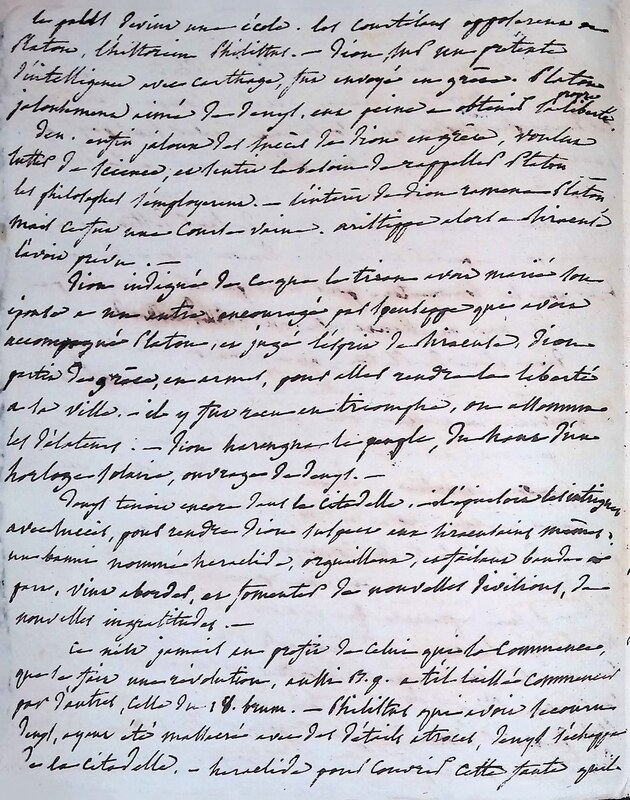 le palais devint une école. les courtisans opposerent a
Platon, l'historien Philistus. — Dion, sur un prétexte
d'intelligence avec carthage, fut envoyé en grèce. Platon
jalousement aimé de denys, eut peine a obtenir sa propre liberté.
den. enfin jaloux des succès de dion en grèce, voulut
lutter de science, et sentit le besoin de rappeller Platon
les philosophes s'employerent. — l'intérêt de dion ramena Platon
mais ce fut une course vaine. aristippe alors a siracuse
l'avoit prévu. —
Dion indigné de ce que le tiran avoit marié son
épouse a un autre, encouragé par speusippe qui avoit
accompagné Platon, et jugé l'esprit de siracuse, Dion
partit de grèce, en armes, pour aller rendre la liberté
a sa ville. — il y fut reçu en triomphe, on assomma
les délateurs. — Dion harangua le peuple, du haut d'une
horloge solaire, ouvrage de denys. —
Denys tenoit encore dans la citadelle. — il employa les intrigues
avec succès, pour rendre Dion suspect aux siracusains mêmes.
un banni nommé heraclide, orguilleux, et faisant bande a
part, vint aborder, et fomenter de nouvelles divisions, de
nouvelles ingratitudes. —
Ce n'est jamais au profit de celui qui la commence,
que se fait une révolution, aussi B.p. a t'il laissé commencer
par d'autres, celle du 18. brum. — Philistus qui avoit secouru
Denys, ayant été massacré avec des détails atroces, Denys s'échappa
de la citadelle. — heraclide pour couvrir cette faute qu'il